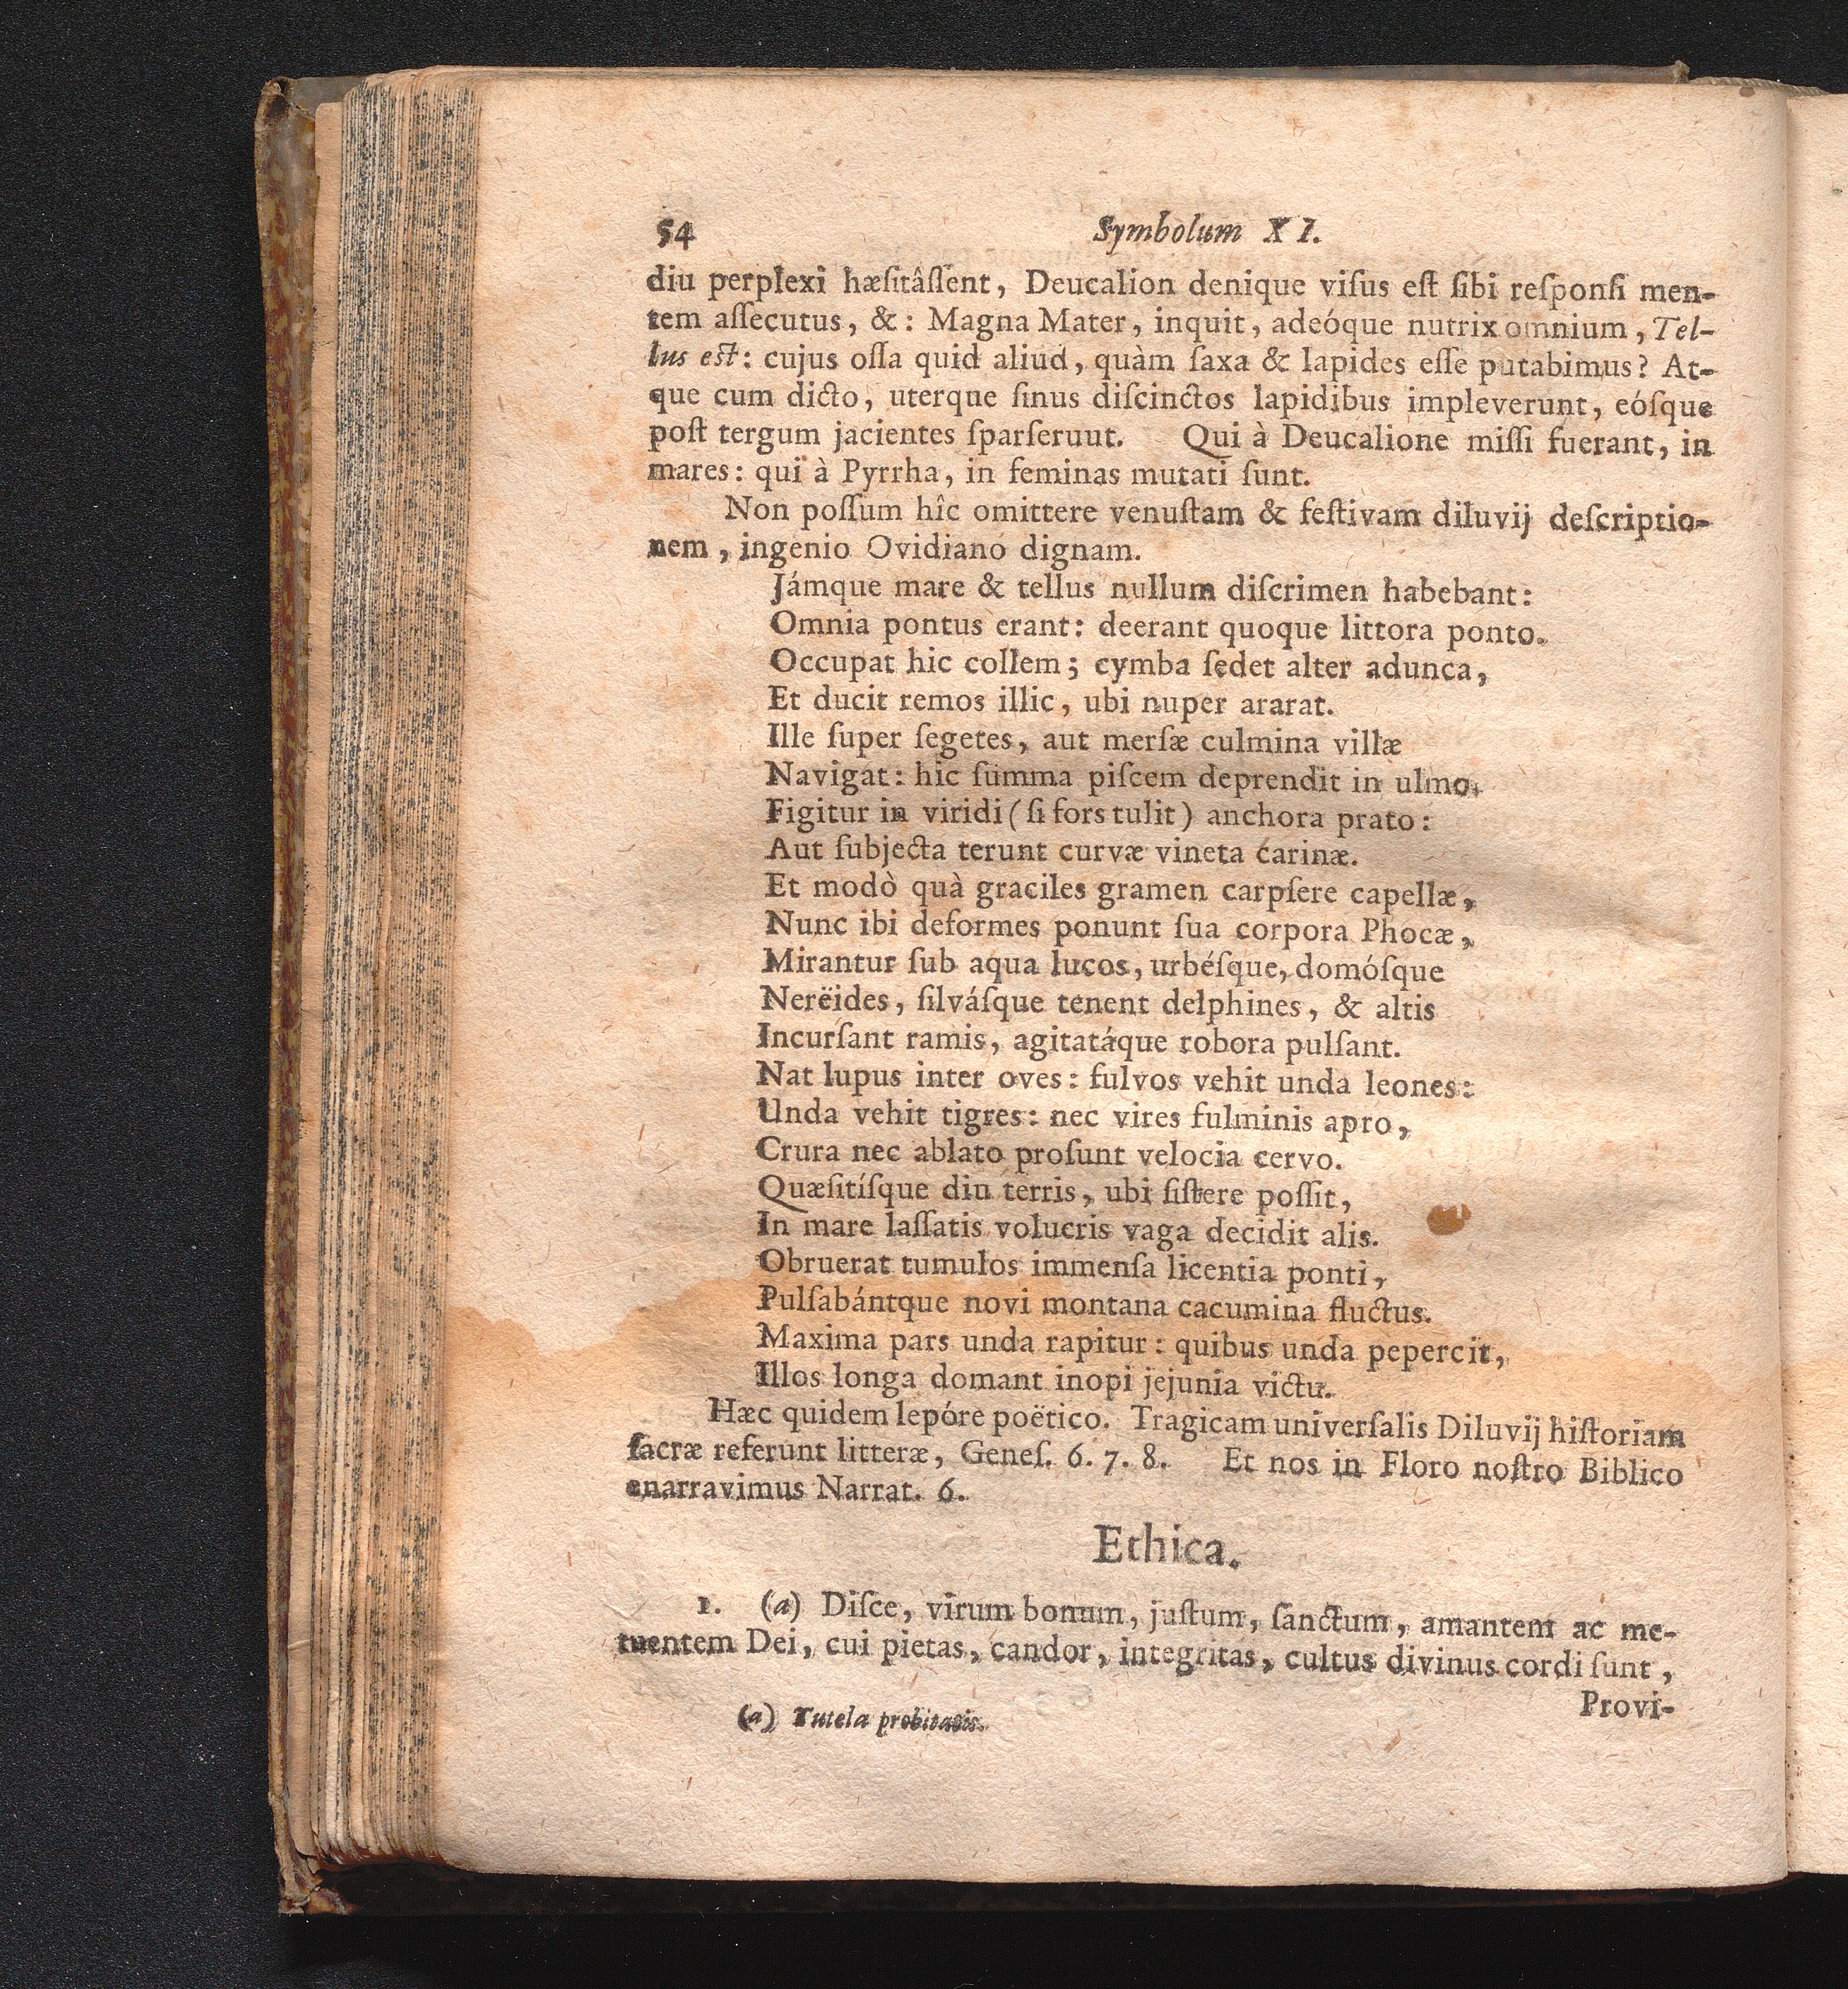 54 Symbolum XI.
diu perplexi hæſitâſſent, Deucalion denique viſus eſt ſibi reſponſi men-
tem aſſecutus, &: Magna Mater, inquit, adeóque nutrix omnium, Tel-
lus eſt: cujus oſſa quid aliud, quàm ſaxa & lapides eſſe putabimus? At-
que cum dicto, uterque ſinus diſcinctos lapidibus impleverunt, eóſque
poſt tergum jacientes ſparſeruut. Qui à Deucalione miſſi fuerant, in
mares: qui à Pyrrha, in feminas mutati ſunt.
Non poſſum hîc omittere venuſtam & feſtivam diluvij deſcriptio-
nem, ingenio Ovidiano dignam.
Jámque mare & tellus nullum diſcrimen habebant:
Omnia pontus erant: deerant quoque littora ponto.
Occupat hic collem; cymba ſedet alter adunca,
Et ducit remos illic, ubi nuper ararat.
Ille ſuper ſegetes, aut merſæ culmina villæ
Navigat: hic ſumma piſcem deprendit in ulmo.
Figitur in viridi (ſi fors tulit) anchora prato:
Aut ſubjecta terunt curvæ vineta carinæ.
Et modò quà graciles gramen carpſere capellæ,
Nunc ibi deformes ponunt ſua corpora Phocæ,
Mirantur ſub aqua lucos, urbéſque, domóſque
Nerëides, ſilváſque tenent delphines, & altis
Incurſant ramis, agitatáque robora pulſant.
Nat lupus inter oves: fulvos vehit unda leones:
Unda vehit tigres: nec vires fulminis apro,
Crura nec ablato proſunt velocia cervo.
Quæſitíſque diu terris, ubi ſiſtere poſſit,
In mare laſſatis volucris vaga decidit alis.
Obruerat tumulos immenſa licentia ponti,
Pulſabántque novi montana cacumina fluctus.
Maxima pars unda rapitur: quibus unda pepercit,
Illos longa domant inopi jejunia victu.
Hæc quidem lepóre poëtico. Tragicam univerſalis Diluvij hiſtoriam
ſacræ referunt litteræ, Geneſ. 6. 7. 8. Et nos in Floro noſtro Biblico
enarravimus Narrat. 6.
Ethica.
1. (a) Diſce, virum bonum, juſtum, ſanctum, amantem ac me-
tuentem Dei, cui pietas, candor, integritas, cultus divinus cordi ſunt,
Provi-
(a) Tutela probitatis.